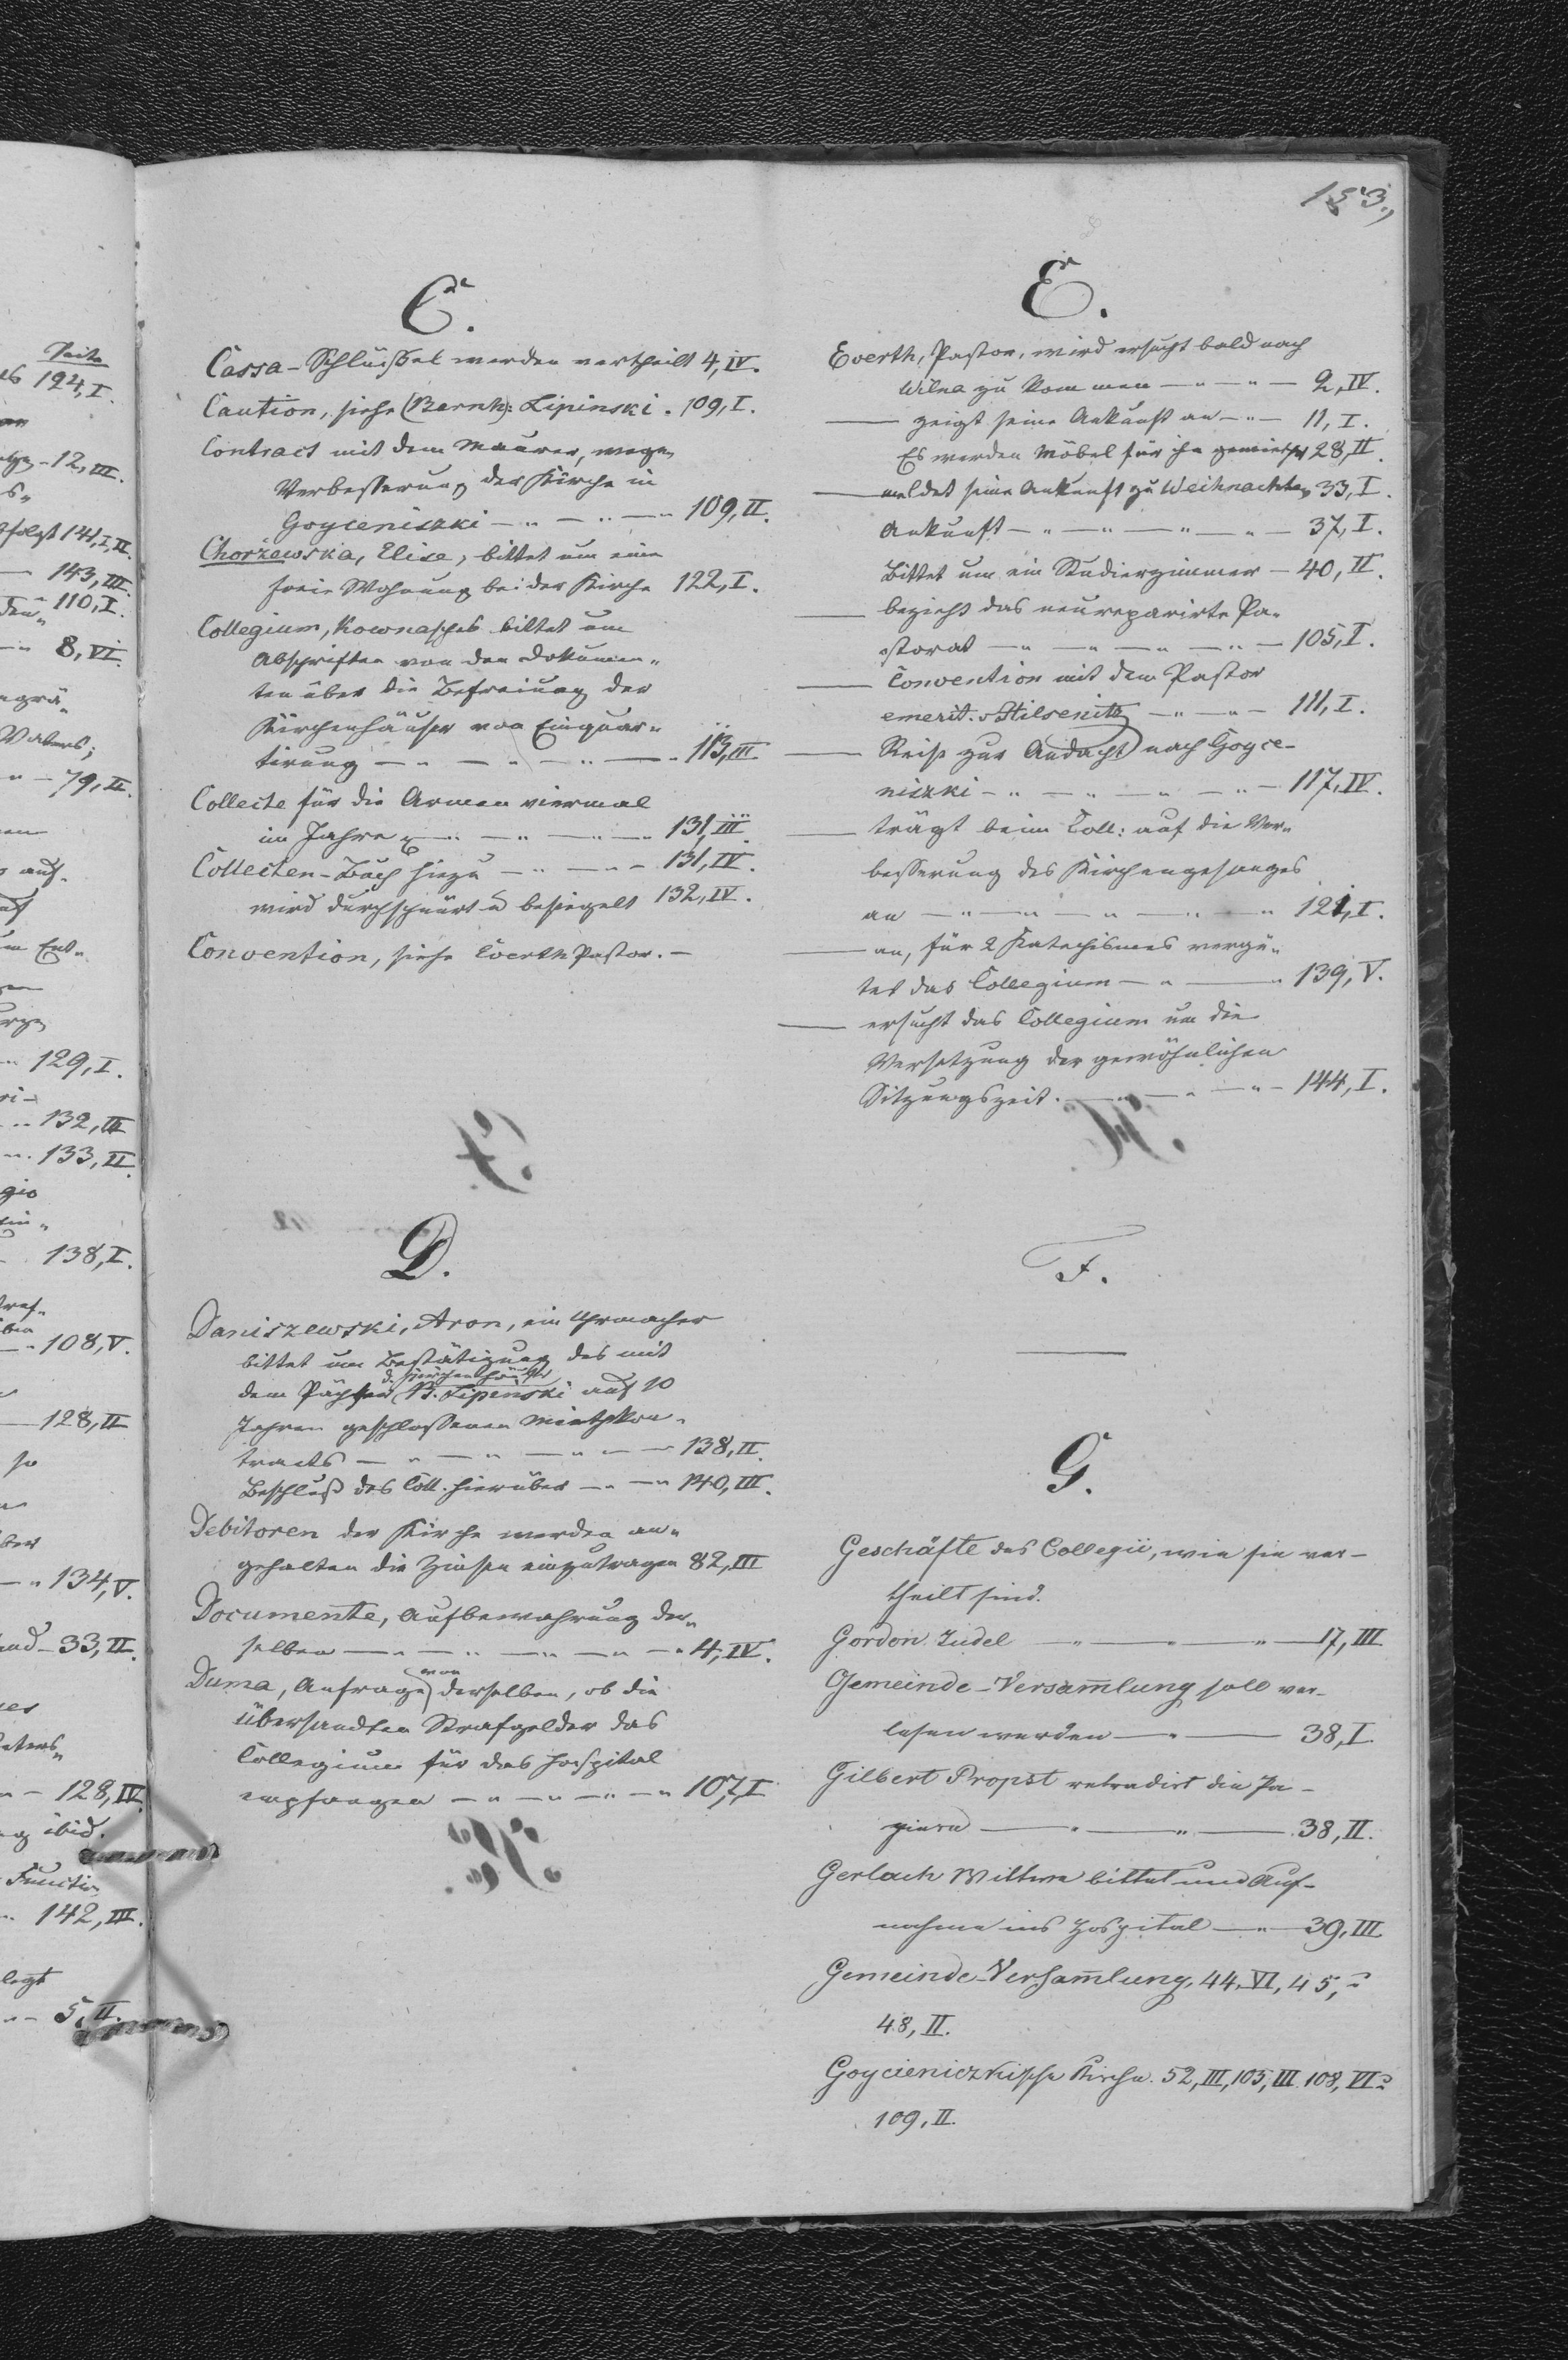 153.,
Seite
124, I.
12, III.
folgt 141, I, II.
143, III.
110, I.
8, VI.
79, II.
129, I.
132, III
133, II.
138, I.
108, V.
128, II
134, V.
33, II.
128, IV.
ibid.
Function
142, III.
5, II.
C.
Cassa-Schlüssel werden vertheilt 4, IV.
Caution, siehe (Bernh): Lipinski. 109, I.
Contract mit dem Maurer, wegen
Verbesserung der Kirche in
Goyceniszki — " — " — " 109, II.
Chorżewska, Elise, bittet um eine
freie Wohnung bei der Kirche 122, I.
Collegium, Kownasches bittet um
Abschriften von den Dokumen-
ten über die Befreiung der
Kirchenhäuser von Einquar-
tirung — " — " — " — " 113, III
Collecte für die Armen viermal
im Jahre — " — " — " 131, III.
Collecten-Buch hiezu — " — " — 131, IV.
wird durchschnürt u besiegelt 132, IV.
Convention, siehe Everth Pastor. —
D.
Daniszewski, Aron, ein Uhrmacher
bittet um Bestätigung des mit
d. Kirchenhäuser
dem Pächter B. Lipinski auf 10
Jahren geschlossenen Miethkon-
tracts — " — " — " — 138, II.
Beschluß des Coll. hierüber — " — " 140, III.
Debitoren der Kirche werden an-
gehalten die Zinsen einzutragen 82, III
Documente, Aufbewahrung der-
selben — " — " — " — " — " 4, IV.
von
Duma, Anfrage derselben, ob die
übersandten Strafgelder das
Collegium für das Hospital
empfangen — " — " — " — " 107, I
E.
Everth, Pastor, wird ersucht bald nach
Wilna zu kommen — " — " — 2, IV.
— zeigt seine Ankunft an — " — 11, I.
Es werden Möbel für ihn gemiethet 28, II.
— meldet seine Ankunft zu Weihnachten 33, I.
Ankunft — " — " — " — " — 37, I.
Bittet um ein Studierzimmer — 40, II.
— bezieht das neureparirte Pa-
storat — " — " — " — " — 105, I.
— Convention mit dem Pastor
emerit. v Hilsenitz — " — " — 111, I.
— Reise zur Andacht nach Goyce-
niszki — " — " — " — " — 117, IV.
— trägt beim Coll: auf die Ver-
besserung des Kirchengesanges
an — " — " — " — " — " 121, I.
— an, für 2 Katechismus vergü-
tet das Collegium — " — " 139, V.
— ersucht das Collegium um die
Versetzung der gewöhnlichen
Sitzungszeit. — " — " — " — 144, I.
F.
G.
Geschäfte des Collegii, wie sie ver-
theilt sind.
Gordon Judel — " — " — " — 17, III
Gemeinde-Versam̄lung soll ver-
lesen werden — " — 38, I.
Gilbert Propst retradirt die Pa-
piere — " — " — 38, II.
Gerlach Wittwe bittet um Auf-
nahme ins Hospital — " — 39, III
Gemeinde-Versam̄lung. 44, VI, 45,
48, II.
Goycieniczkische Kirche. 52, III, 105, III. 108, VI.
109, II.